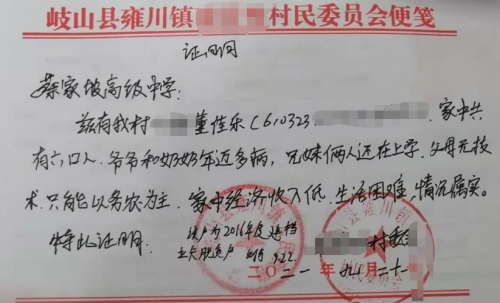 岐山县雍川镇 村民委员会便笺
证明
蔡家坡高级中学:
兹有我村 董佳乐(610323 家中共
有六口人,爷爷和奶奶年迈多病,兄妹俩人还在上学,父母无技
术,只能以务农为主,家中经济收入低,生活困难,情况属实。
特此证明
该户为2016年度建档
立卡脱贫户 9.22.
村委会
二〇二一年九月二十一